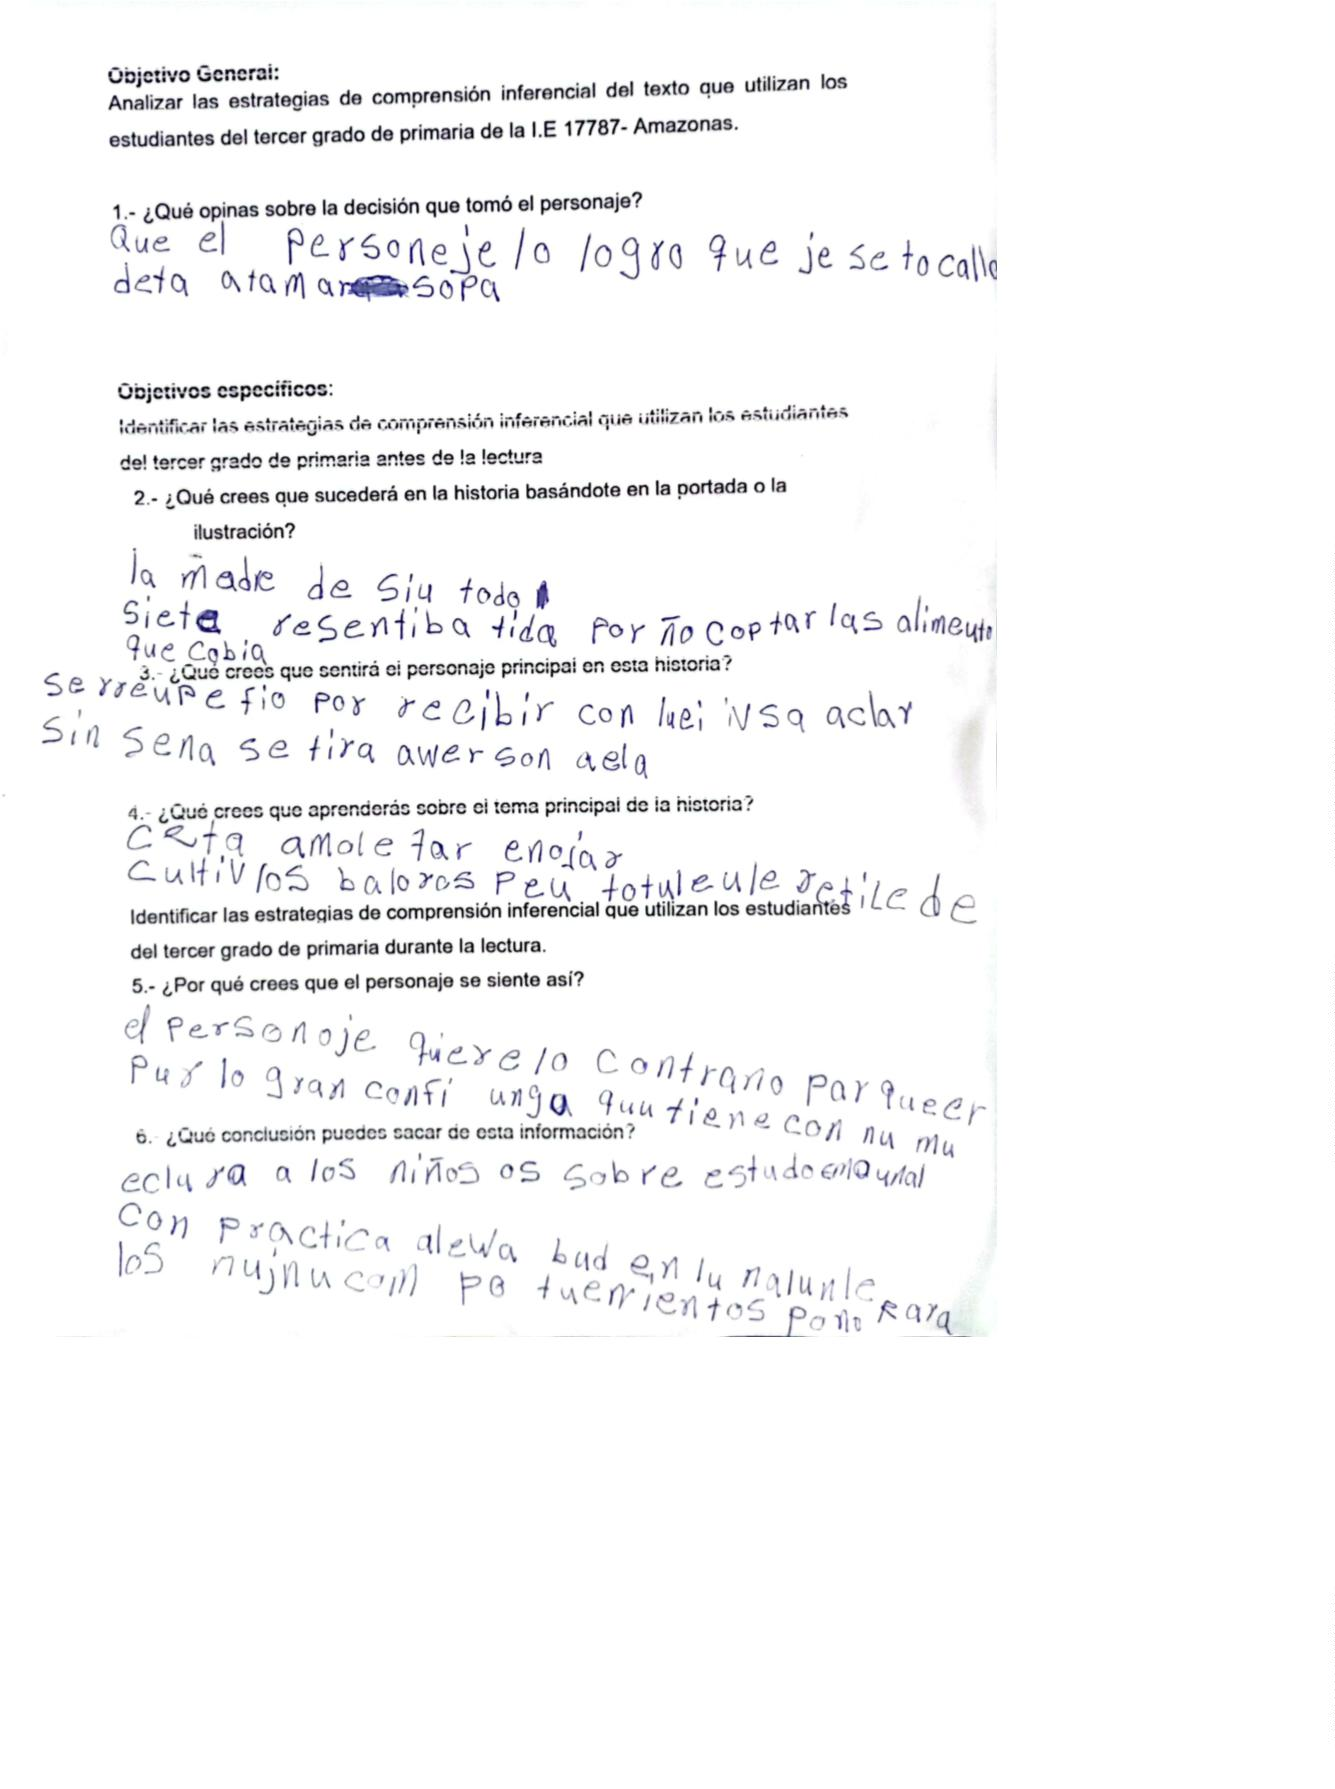 Objetivo General:
Analizar las estrategias de comprensión inferencial del texto que utilizan los
estudiantes del tercer grado de primaria de la I.E 17787- Amazonas.
1.- ¿Qué opinas sobre la decisión que tomó el personaje?
Que el personeje lo logro que je se to callo
deta atamar sopa
Objetivos específicos:
Identificar las estrategias de comprensión inferencial que utilizan los estudiantes
del tercer grado de primaria antes de la lectura
2.- ¿Qué crees que sucederá en la historia basándote en la portada o la
ilustración?
la madre de Siu todo
siete resentiba tida por ño coptar las alimento
que cobia
3.- ¿Qué crees que sentirá el personaje principal en esta historia?
se rreupe fio por recibir con aclar
Sin sena se tira awerson aela
4.- ¿Qué crees que aprenderás sobre el tema principal de la historia?
amole tar enojar
Cultiv los balores peu
Identificar las estrategias de comprensión inferencial que utilizan los estudiantes
del tercer grado de primaria durante la lectura.
5.- ¿Por qué crees que el personaje se siente así?
el personoje quiere lo contrario par queer
Pur lo gran confi unga quu tiene con nu mu
6.- ¿Qué conclusión puedes sacar de esta información?
eclura a los niños os sobre estudo
Con practica bud en lu
los tuerrientos para